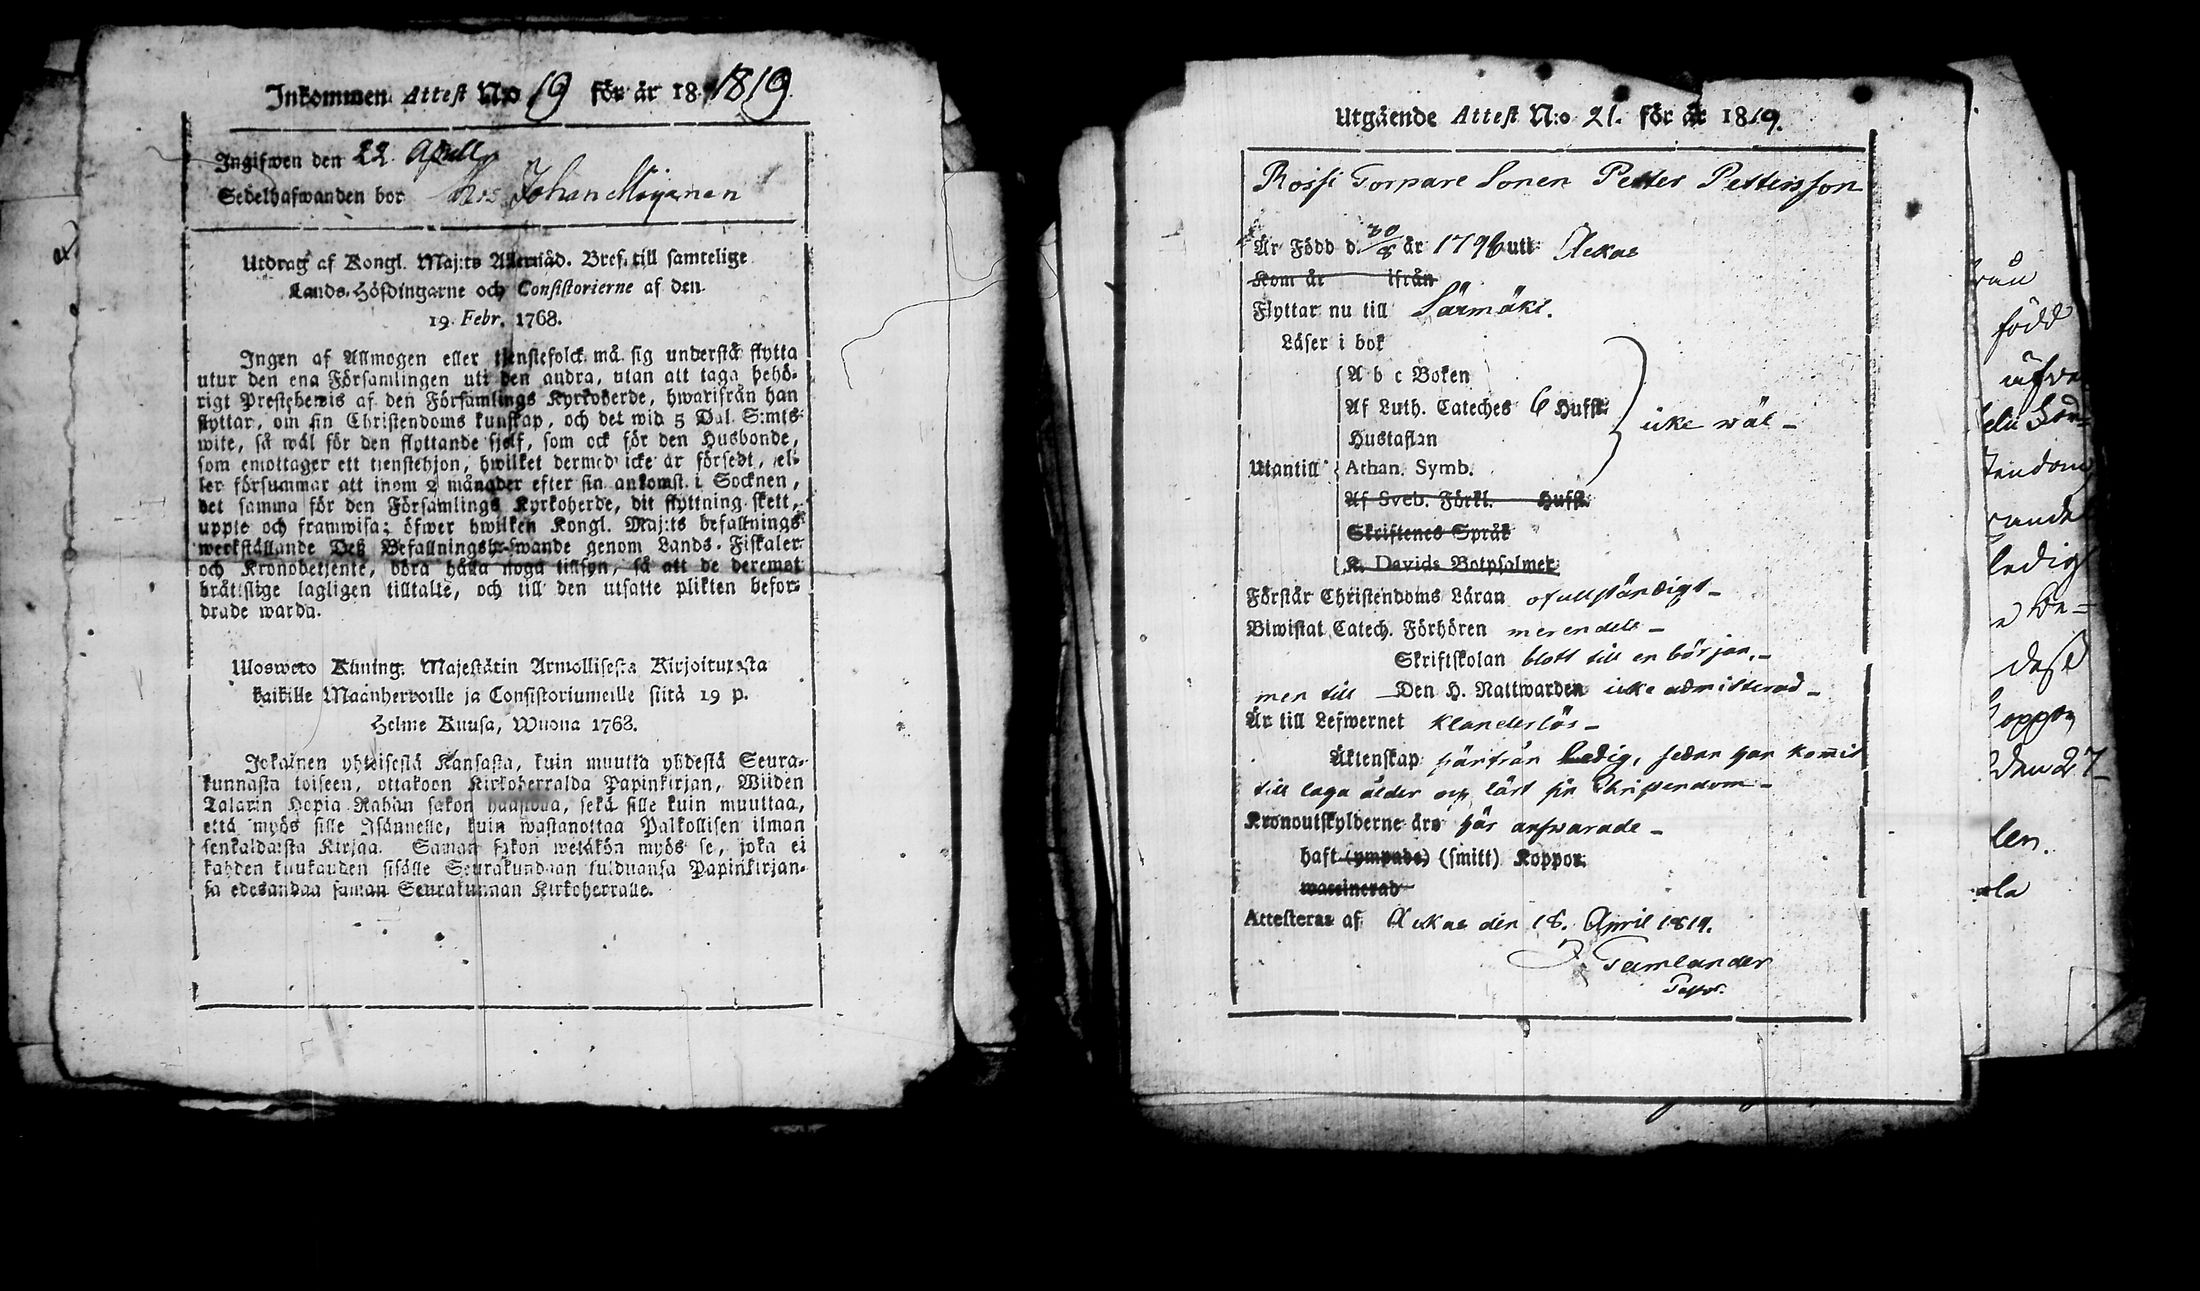 Inkommen Attest N:o 19 för år 18 1819.
Ingifwen den 22. Aprill
Sedelhafwanden bor hos Johan Moijanen
Utdrag af Kongl. Maj:ts Allernåd. Bref till samtelige
Lands-Höfdingarne och Consistorierne af den
19. Febr. 1768.
Ingen af Allmogen eller tjenstefolck må sig understå flytta
utur den ena Församlingen uti den andra, utan att taga behö-
rigt Prestebewis af den Församlings Kyrkoherde, hwarifrån han
flyttar, om sin Christendoms kunskap, och det wid 5 Dal. S:mts
wite, så wäl för den flyttande sjelf, som ock för den Husbonde,
som emottager ett tienstehjon, hwilket dermed icke är försedt, el-
ler försummar att inom 2 månader efter sin ankomst i Socknen,
det samma för den Församlings Kyrkoherde, dit flyttning skett,
uppte och framwisa; öfwer hwilken Kongl. Maj:ts befallnings
werkställande Deß Befallningshafwande genom Lands-Fiskaler
och Kronobetjente, böra hålla noga tillsyn, så att de deremot
bråttslige lagligen tilltalte, och till den utsatte plikten befor-
drade warda.
Uloswero Kuning. Majestätin Armollisesta Kirjoituxesta
kaikille Maanherroille ja Consistoriumeille siitä 19 p.
Helme Kuusa, Wuona 1768.
Jokainen yhteisestä Kansasta, kuin muutta yhdestä Seura-
kunnasta toiseen, ottakoon Kirkoherralda Papinkirjan, Wiiden
Talarin Hopia Rahan sakon haastolla, sekä sille kuin muuttaa,
että myös sille Isännelle, kuin wastanottaa Palkollisen ilman
senkaldaista Kirjaa. Saman sakon wetäkön myös se, joka ei
kahden kuukauden sisälle Seurakundaan tulduansa Papinkirjan-
sa edesandaa saman Seurakunnan Kirkoherralle.
Utgående Attest N:o 21. för år 1819.
Rossi Torpare Sonen Petter Pettersson
Är Född d. 30/8 år 1796 uti Ackas
Kom år ifrån
Flyttar nu till Särmäki.
Läser i bok
A b c Boken
Af Luth. Cateches 6 Hufst.
icke wäl -
Hustaflan
Utantill Athan. Symb.
Af Sveb. Förkl. Hufst.
Skriftenes Språk
K. Davids Botpsalmer
Förstår Christendoms Läran ofullständigt -
Biwistat Catech. Förhören merendels -
Skriftskolan blott till en början, -
men till Den H. Nattwarden icke admitterad -
Är till Lefwernet klanderlös -
Äktenskap härifrån ledig, sedan han kommit
till laga ålder och lärt sin Christendom -
Kronoutskylderne äro här answarade -
haft (ympade) (smitt) Koppor.
waccinerad
Attesteras af Ackas den 18. April 1819.
Tamlander
Pastor.
född
ledig
den 27